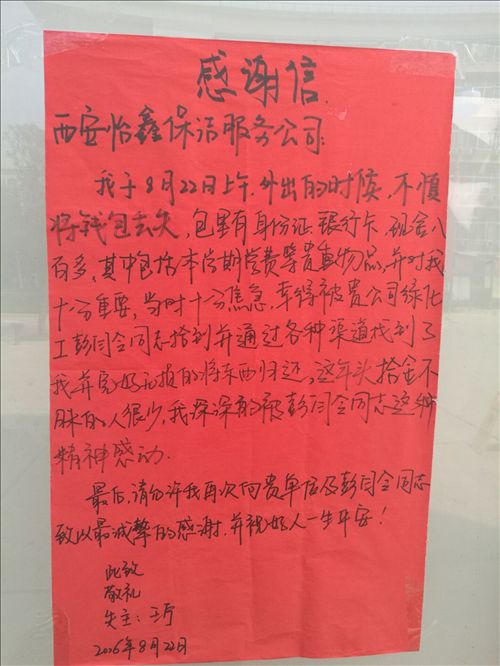 感谢信
西安怡鑫保洁服务公司:
我于8月22日上午,外出的时候,不慎
将钱包丢失,包里有身份证、银行卡、现金八
百多,其中包括本学期学费等贵重物品,并对我
十分重要,当时十分焦急,幸得被贵公司绿化
工彭闩会同志拾到并通过各种渠道找到了
我并完好无损的将东西归还,这年头拾金不
昧的人很少,我深深的被彭闩会同志这种
精神感动.
最后,请允许我再次向贵单位及彭闩会同志
致以最诚挚的感谢,并祝好人一生平安!
此致
敬礼
失主:王
2016年8月22日